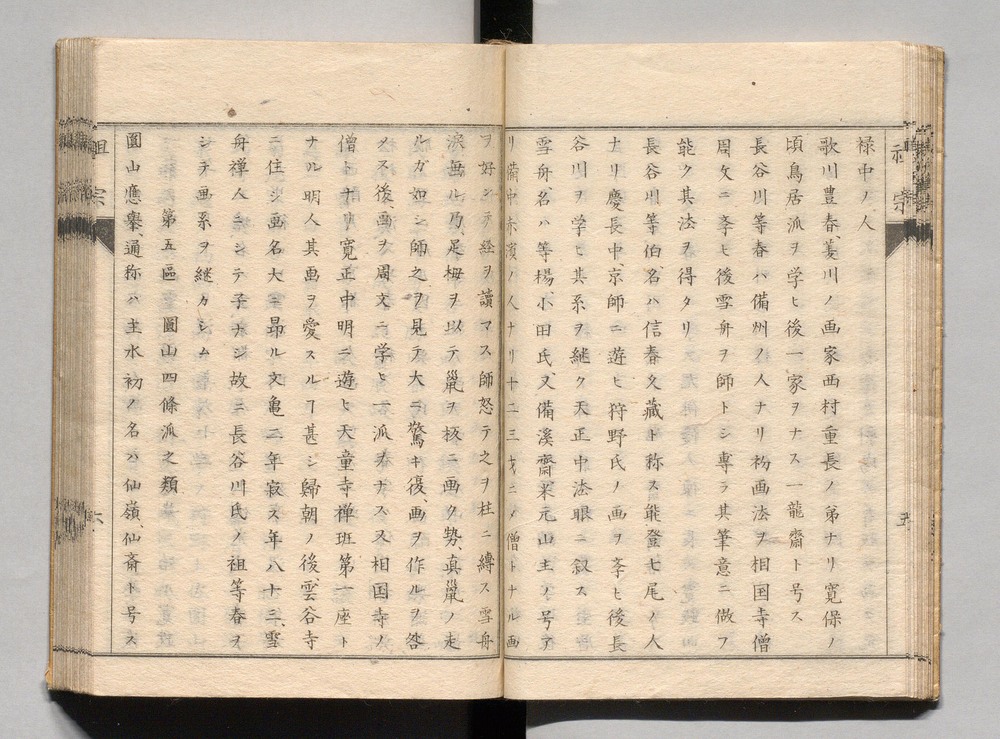 祖宗
五
禄中ノ人
歌川豊春菱川ノ画家西村重長ノ第ナリ寛保ノ
頃鳥居派ヲ学ヒ後一家ヲナス一龍齋ト号ス
長谷川等春ハ備州ノ人ナリ初画法ヲ相国寺僧
周文ニ斈ヒ後雪舟ヲ師トシ専ラ其筆意ニ倣フ
能ク其法ヲ得タリ
長谷川等伯名ハ信春久藏ト称ス能登七尾ノ人
ナリ慶長中京師ニ遊ヒ狩野氏ノ画ヲ斈ヒ後長
谷川ヲ学ヒ其系ヲ継ク天正中法眼ニ叙ス
雪舟名ハ等楊小田氏又備溪齋米元山主ノ号ア
リ備中赤濱ノ人ナリ十二三才ニメ僧トナル画
ヲ好シテ経ヲ讀マス師怒テ之ヲ柱ニ縛ス雪舟
涙無ル乃足梅ヲ以テ鼡ヲ板ニ画ク勢真鼡ノ走
ルガ如シ師之ヲ見テ大ニ驚キ復画ヲ作ルヲ咎
メス後画ヲ周文ニ学ヒ一派ヲナス又相国寺ノ
僧トナリ寛正中明ニ遊ヒ天童寺禅班第一座ト
ナル明人其画ヲ愛スルヿ甚シ歸朝ノ後雲谷寺
ニ住シ画名大ニ昴ル文亀二年寂ス年八十三雪
舟禅人ニシテ子ナシ故ニ長谷川氏ノ祖等春ヲ
シテ画系ヲ継カシム
第五區　圓山四條派之類
圓山應舉通称ハ主水初ノ名ハ仙嶺仙斎ト号ス
祖宗
六